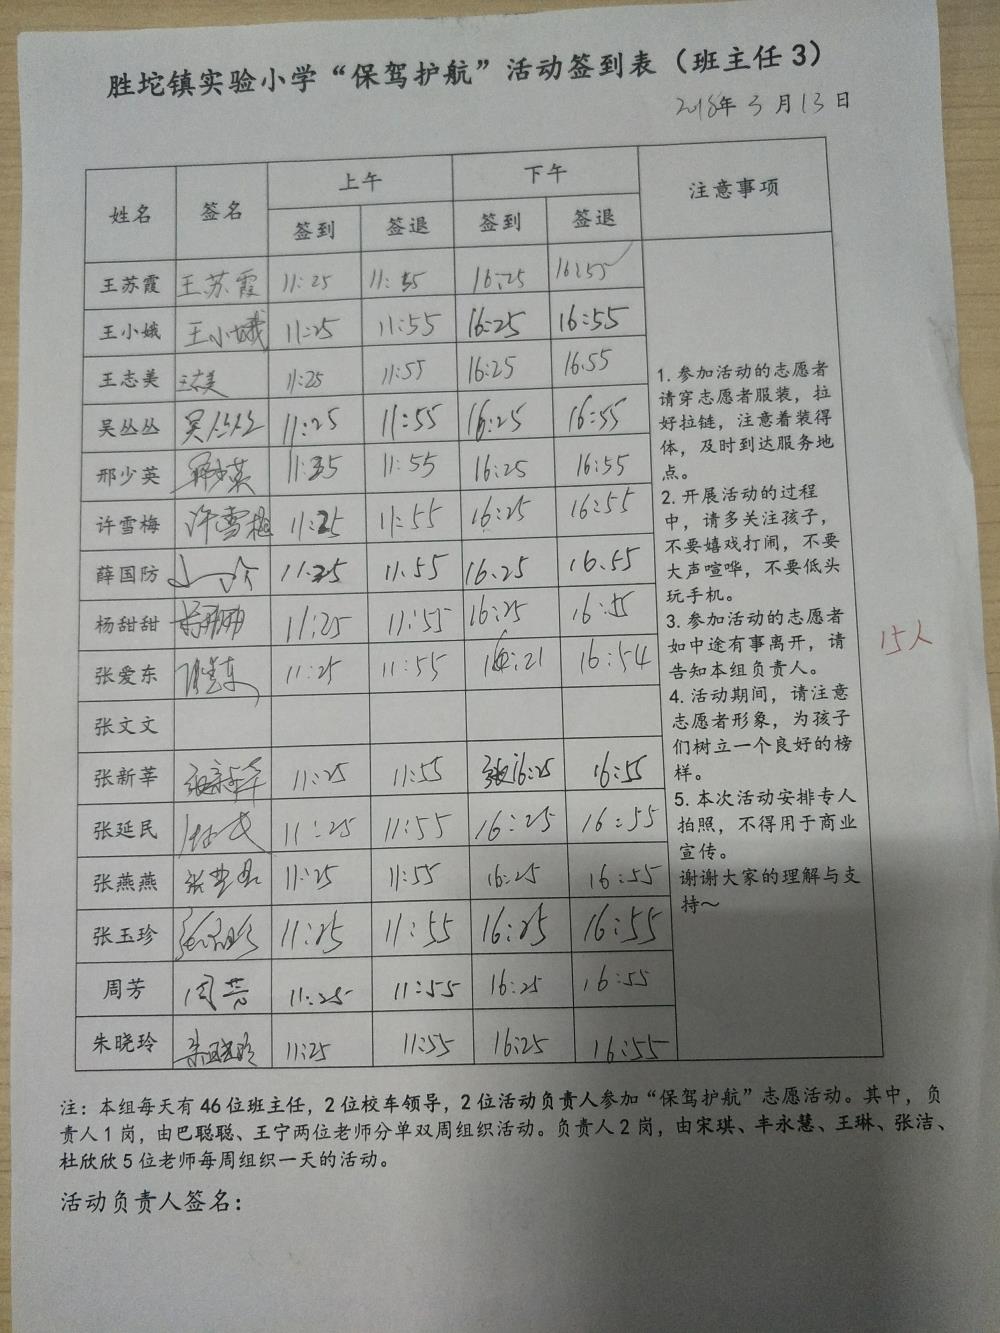 胜坨镇实验小学“保驾护航”活动签到表（班主任3）
2018年3月13日
姓名 签名 上午 下午 注意事项
签到 签退 签到 签退
王苏霞 王苏霞 11:25 11:55 16:25 16:55
王小娥 王小娥 11:25 11:55 16:25 16:55
王志美 王志美 11:25 11:55 16:25 16.55
吴丛丛 吴丛丛 11:25 11:55 16:25 16:55
邢少英 邢少英 11:25 11:55 16:25 16:55
许雪梅 许雪梅 11:25 11:55 16:25 16:55
薛国防 11:25 11.55 16.25 16.55
杨甜甜 11:25 11:55 16:25 16:55
张爱东 张爱东 11:25 11:55 16:21 16:54
张文文
张新莘 张新莘 11:25 11:55 16:25 16:55
张延民 张延民 11:25 11:55 16:25 16:55
张燕燕 11:25 11:55 16:25 16:55
张玉珍 张玉珍 11:25 11:55 16:25 16:55
周芳 周芳 11:25 11:55 16:25 16:55
朱晓玲 朱晓玲 11:25 11:55 16:25 16:55
1.参加活动的志愿者
请穿志愿者服装，拉
好拉链，注意着装得
体，及时到达服务地
点。
2.开展活动的过程
中，请多关注孩子，
不要嬉戏打闹，不要
大声喧哗，不要低头
玩手机。
3.参加活动的志愿者
如中途有事离开，请
告知本组负责人。
4.活动期间，请注意
志愿者形象，为孩子
们树立一个良好的榜
样。
5.本次活动安排专人
拍照，不得用于商业
宣传。
谢谢大家的理解与支
持～
15人
注：本组每天有46位班主任，2位校车领导，2位活动负责人参加“保驾护航”志愿活动。其中，负
责人1岗，由巴聪聪、王宁两位老师分单双周组织活动。负责人2岗，由宋琪、丰永慧、王琳、张洁、
杜欣欣5位老师每周组织一天的活动。
活动负责人签名：